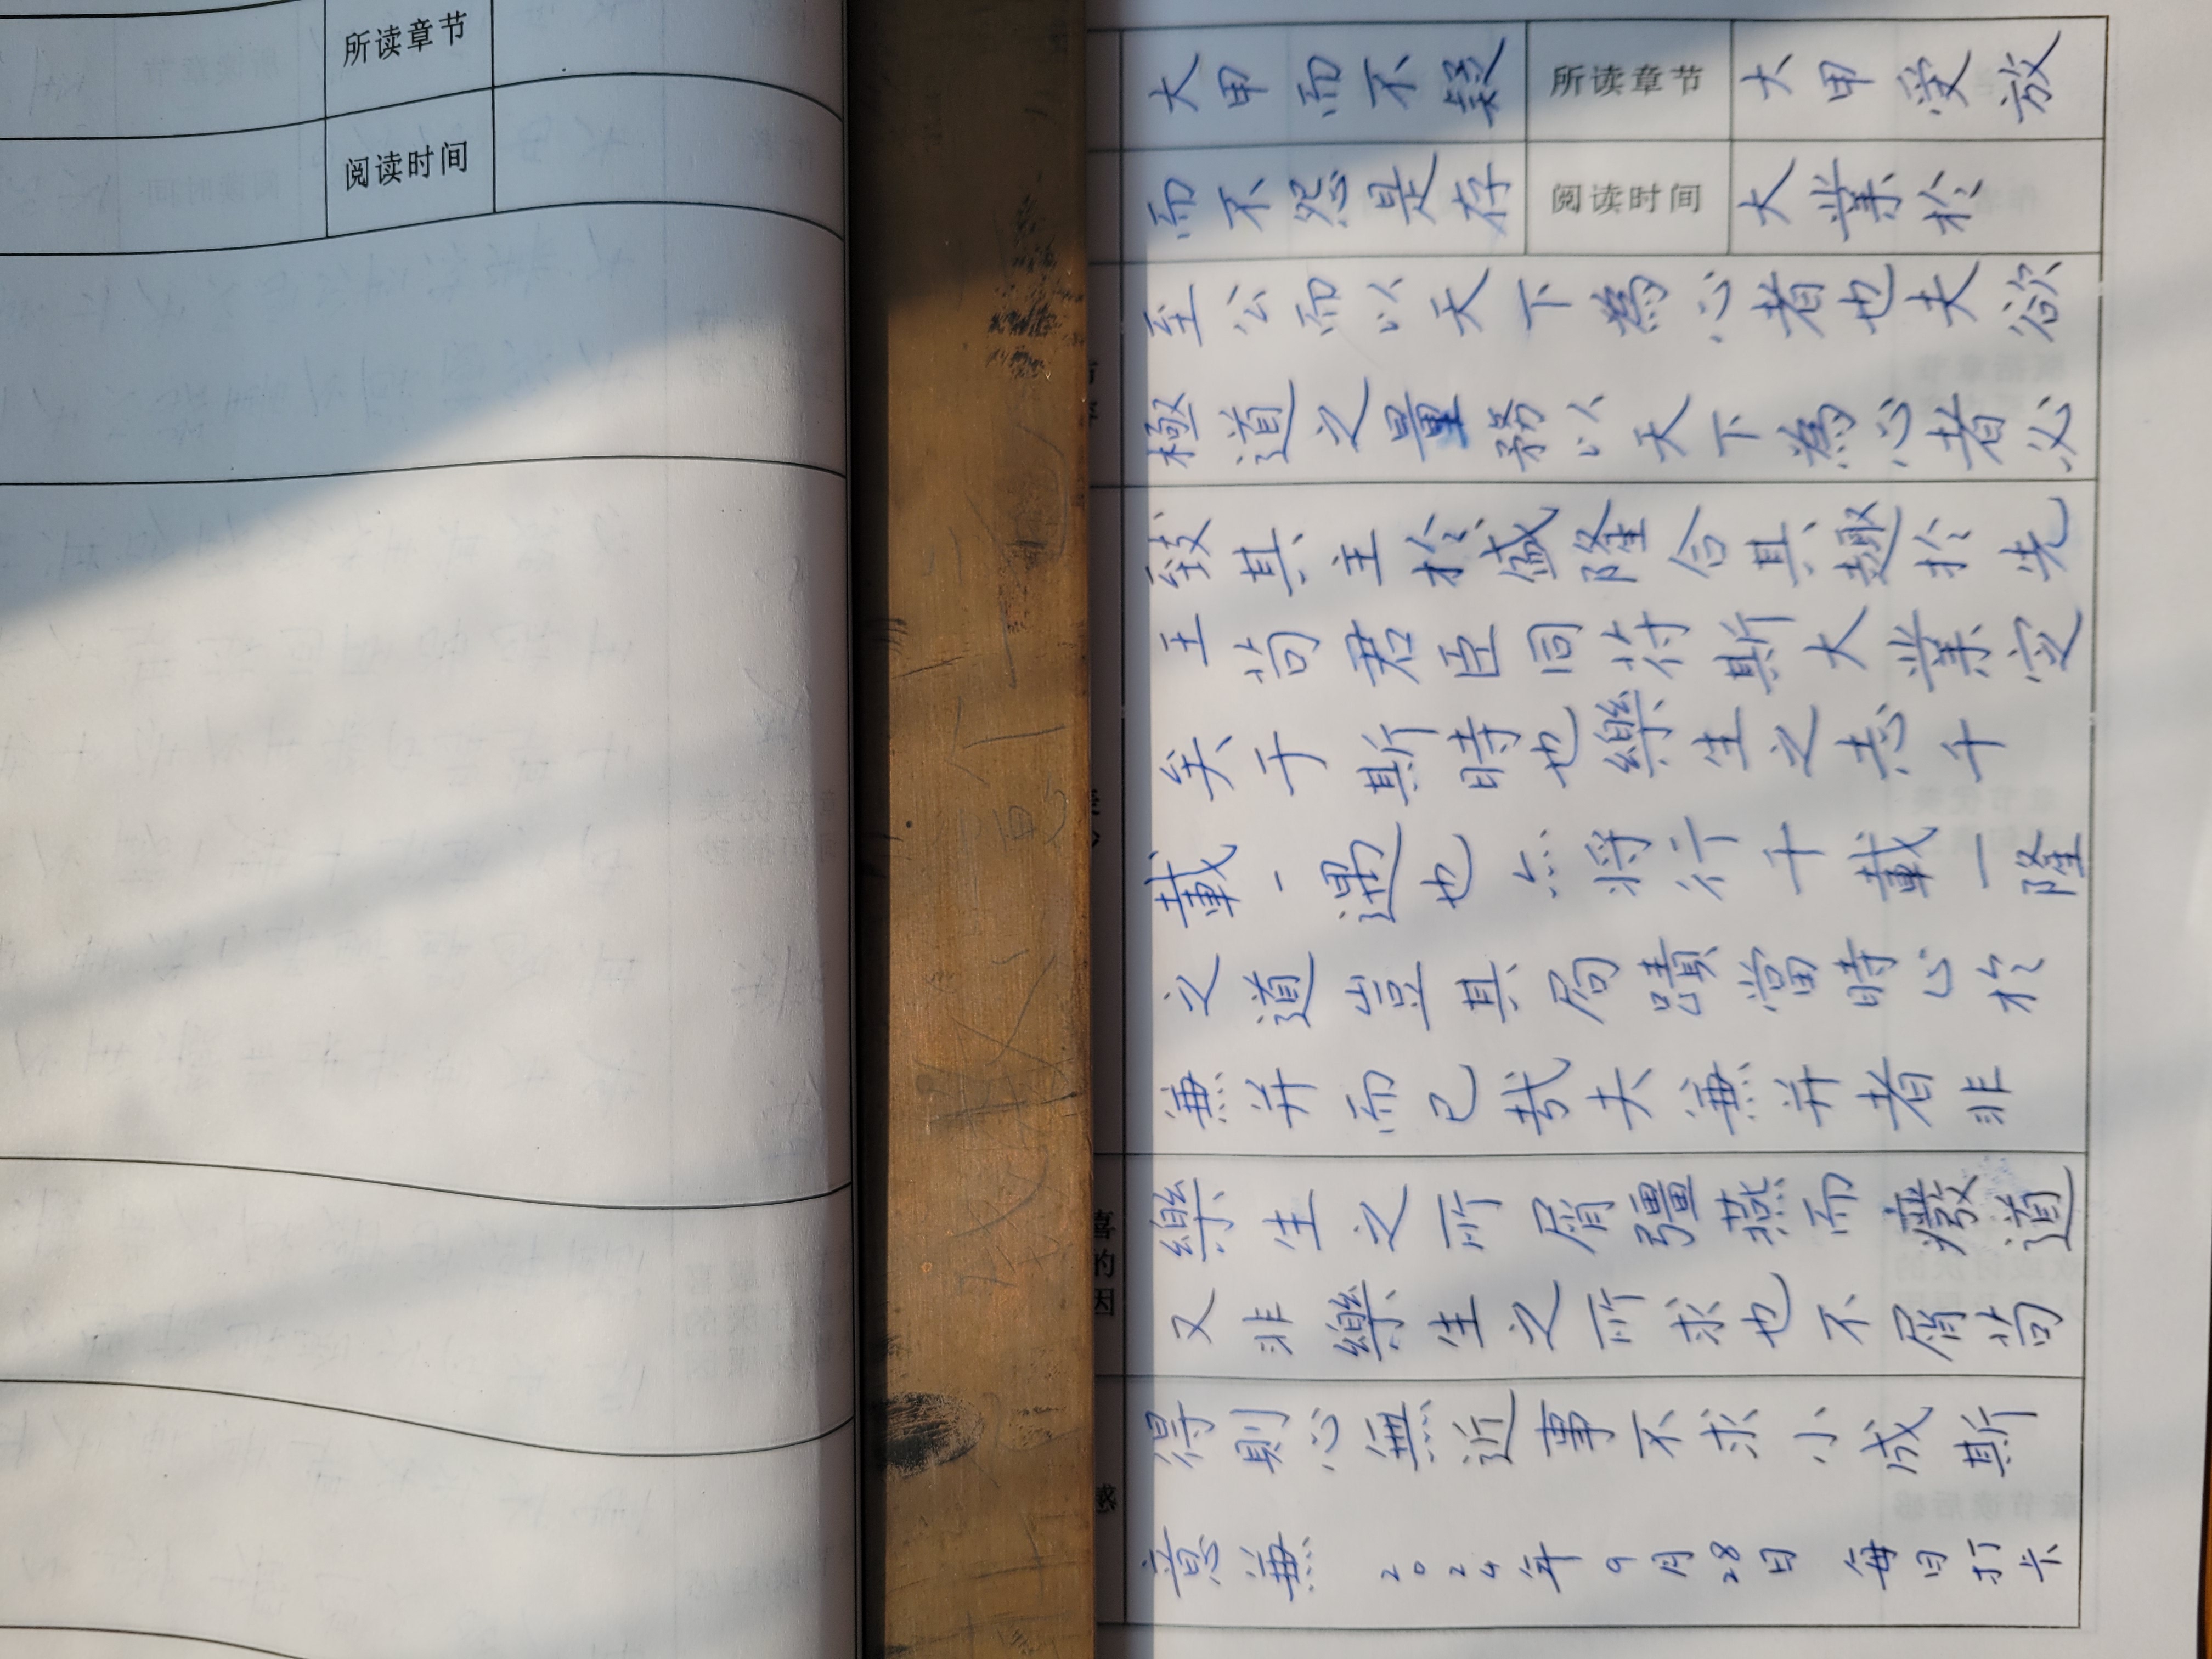 所读章节
阅读时间
大甲而不疑 所读章节 大甲受放
而不怨是存 阅读时间 大業於
至公而以天下為心者也夫欲
極道之量務以天下為心者必
致其主於盛隆合其趣於先
王苟君臣同符斯大業定
矣于斯時也樂生之志千
載一遇也亦将行千載一隆
之道豈其局蹟當時止於
兼并而已哉夫兼并者非
樂生之所屑彊燕而癈道
又非樂生之所求也不屑苟
得則心無近事不求小成斯
意兼 2024年9月28日 每日打卡